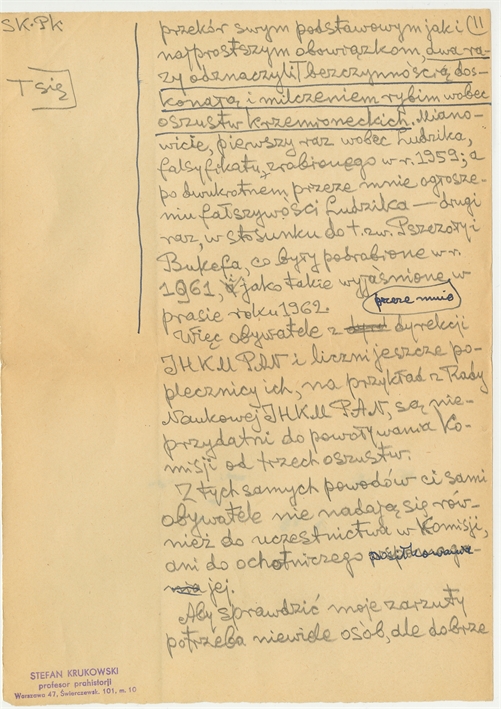 SK·Pk
11
T się
przekór swym podstawowym jak i
najprostszym obowiązkom, dwa ra-
zy odznaczyli się bezczynnością dos-
konałą i milczeniem rybim wobec
oszustw krzemronieckich. Miano-
wicie, pierwszy raz wobec Ludzika,
falsyfikatu, zrabionego w r. 1959; a
po dwukrotnem przeze mnie ogłosze-
niu fałszywości Ludzika — drugi
raz, w stosunku do t. zw. Pszczoły i
Bukefa, co były podrabione w r.
1961, jako takie wyjaśnione w
przeze mnie
prasie roku 1962.
Więc obywatele z dyrekcji
IHKM PAN i liczni jeszcze po-
plecznicy ich, na przykład z Rady
Naukowej IHKM PAN, są nie-
przydatni do powoływania Ko-
misji od trzech oszustw.
Z tych samych powodów ci sami
obywatele nie nadają się rów-
nież do uczestnictwa w Komisji,
ani do ochotniczego
jej.
Aby sprawdzić moje zarzuty
potrzeba niewiele osób, ale dobrze
STEFAN KRUKOWSKI
profesor prahistorji
Warszawa 47, Świerczewsk. 101, m. 10